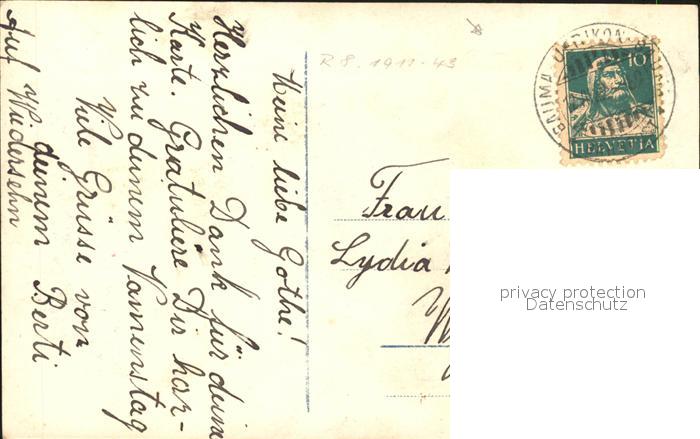 Meine liebe Gothe!
Herzlichen Dank für deine
Karte. Gratuliere Dir herz-
lich zu deinem Namenstag
Viele Grüsse von
deinem Berti
Auf Wiedersehn
R 8. 1911-43
10
HELVETIA
Frau
Lydia
privacy protection
Datenschutz